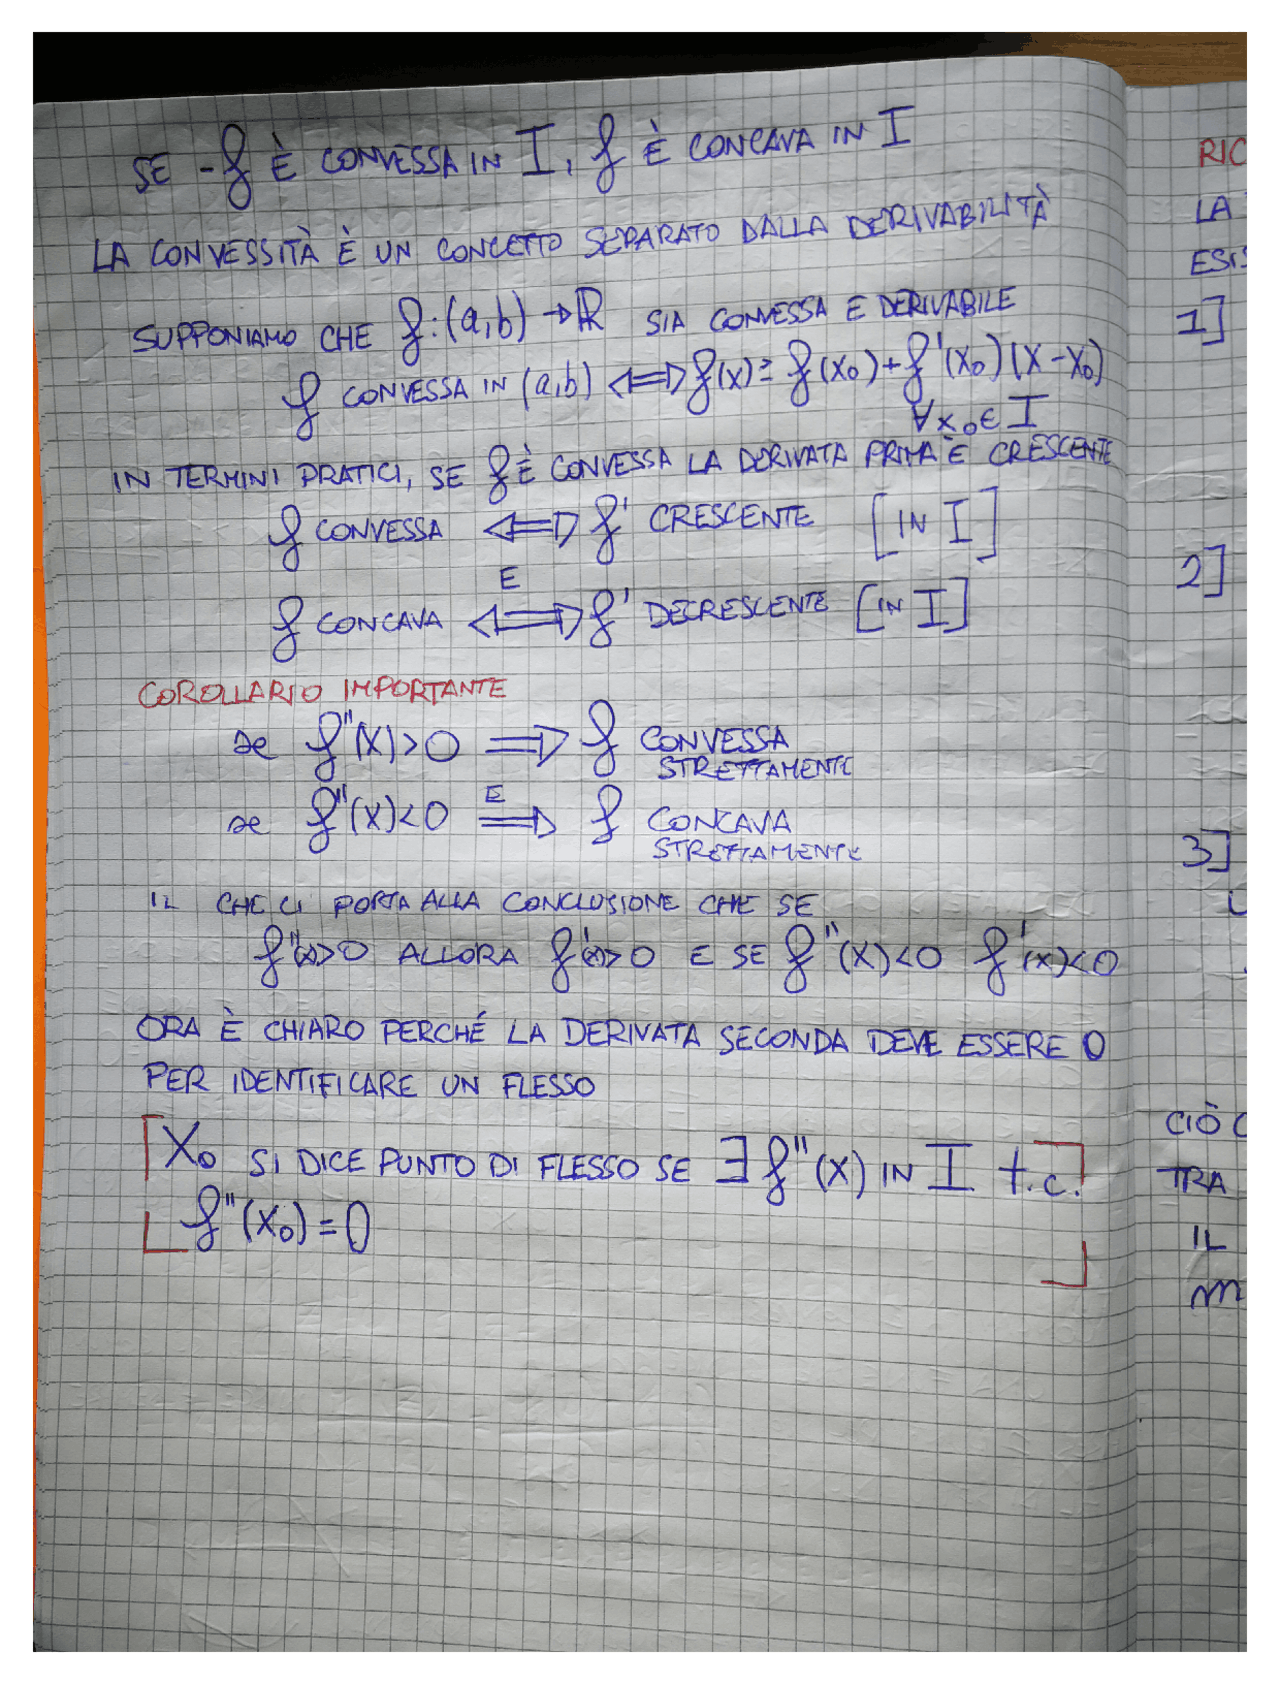 SE -f È CONVESSA IN I, f È CONCAVA IN I
LA CONVESSITÀ È UN CONCETTO SEPARATO DALLA DERIVABILITÀ
SUPPONIAMO CHE f:(a,b)→ℝ SIA CONVESSA E DERIVABILE
f CONVESSA IN (a,b) ⟺ f(x) ≥ f(x₀)+f'(x₀)(x-x₀)
∀x₀∈I
IN TERMINI PRATICI, SE f È CONVESSA LA DERIVATA PRIMA È CRESCENTE
f CONVESSA ⟺ f' CRESCENTE [IN I]
E
f CONCAVA ⟺ f' DECRESCENTE [IN I]
COROLLARIO IMPORTANTE
se f''(x)>0 ⟹ f CONVESSA
STRETTAMENTE
E
se f''(x)<0 ⟹ f CONCAVA
STRETTAMENTE
IL CHE CI PORTA ALLA CONCLUSIONE CHE SE
f''(x)>0 ALLORA f'(x)>0 E SE f''(x)<0 f'(x)<0
ORA È CHIARO PERCHÉ LA DERIVATA SECONDA DEVE ESSERE 0
PER IDENTIFICARE UN FLESSO
X₀ SI DICE PUNTO DI FLESSO SE ∃ f''(x) IN I t.c.
f''(x₀)=0
RIC
LA
ESIS
1]
2]
3]
CIÒ C
TRA
IL
m